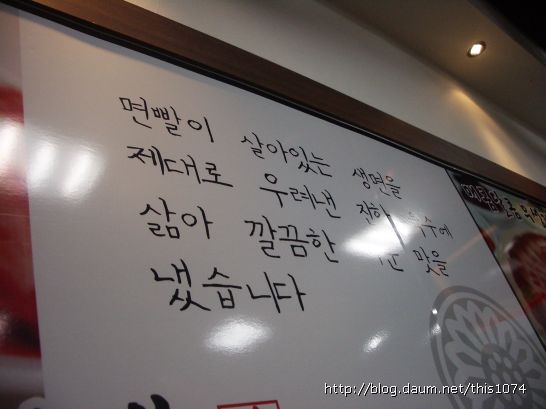 면빨이 살아있는 생면을
제대로 우려낸 진한 육수에
삶아 깔끔한 맛을
냈습니다
http://blog.daum.net/this1074